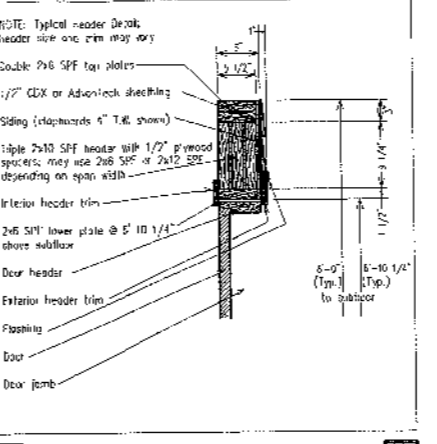 NOTE: Typical Header Detail;
header size and trim may vary
Double 2x6 SPF top plates
1/2" CDX or Advantech sheathing
Siding (clapboards 4" T.W. shown)
Triple 2x10 SPF header with 1/2" plywood
spacers; may use 2x8 SPF or 2x12 SPF
depending on span width
Interior header trim
2x6 SPF lower plate @ 6' 10 1/4"
above subfloor
Door header
Exterior header trim
Flashing
Door
Door jamb
1"
5 1/2"
3"
9 1/4"
1 1/2"
(Typ.)
to subfloor
6'-10 1/2"
(Typ.)